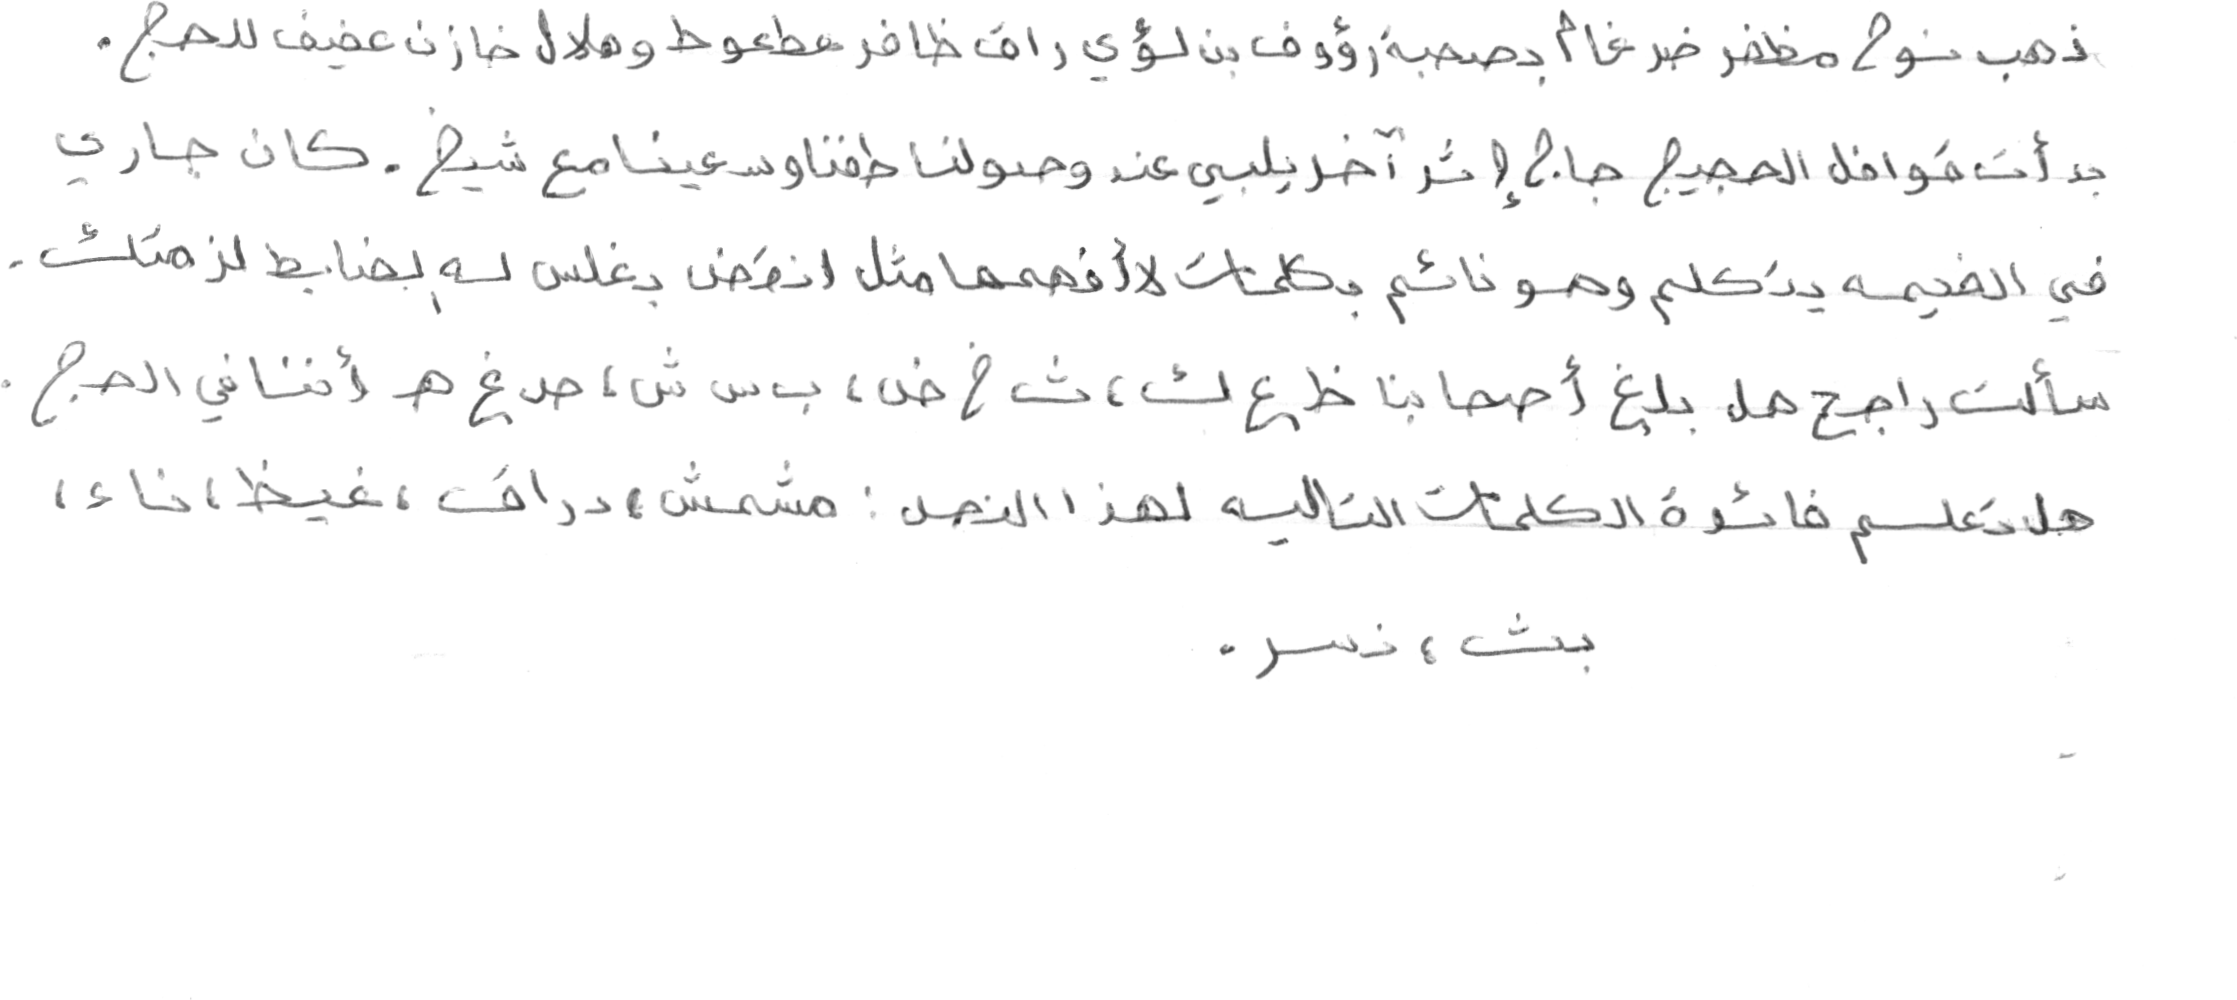 ذهب نوح مظفر ضرغام بصحبة رؤوف بن لؤي راق ظافر عطعوط وهلال خازن عفيف للحج .
بدأت قوافل الحجيج حاج إثر آخر يلبي عند وصولنا طفنا وسعينا مع شيخ . كان جاري
في الخيمه يتكلم وهو نائم بكلمات لا أفهمها مثل انقض بغلس له بضابط لز مثلث .
سألت راجح هل بلغ أصحابنا ظ ع ك ، ث خ ض ، ب س ش ، ص غ هـ أننا في الحج .
هل تعلم فائدة الكلمات التاليه لهذا النص : مشمش ، دراق ، غيظ ، ناء ،
بث ، نسر .